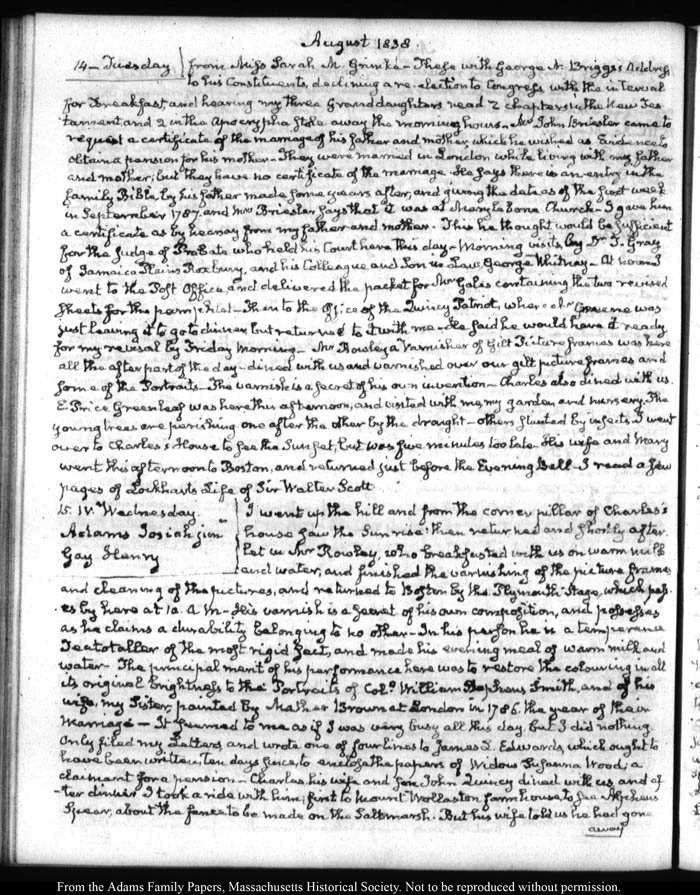 August 1838.
14 – Tuesday from Miss Sarah M. Grimke – These with George N. Briggs's Address
to his Constituents, declining a re-election to Congress, with the interval
for Breakfast and hearing my three Granddaughters read 2 chapters in the New Tes-
tament, and 2 in the Apocrypha stole away the morning hours – Mr John Briesler came to
request a certificate of the marriage of his father and mother, which he wished as Evidence to
obtain a pension for his mother – They were married in London while living with my father
and mother, but they have no certificate of the marriage. He says there is an entry in the
family Bible, by his father made some years after, and giving the date as of the first week
in September 1787, and Mrs Briesler says that it was at Mary le bone Church – I gave him
a certificate as by hearsay from my father and mother – This he thought would be sufficient
for the Judge of Probate who held his Court here this day – Morning visits by Dr T. Gray
of Jamaica Plains Roxbury, and his Colleague and Son in Law, George Whitney – At noon I
went to the Post Office, and delivered the packet for Mr Gales containing the two revised
sheets for the pamphlet – Then to the office of the Quincy Patriot, where Mr Greene was
just leaving it to go to dinner but returned to it with me – He said he would have it ready
for my revisal by Friday Morning – Mr Rowley a Varnisher of Gilt Picture frames was here
all the after part of the day – dined with us and varnished over our gilt picture frames and
some of the Portraits – The varnish is a secret of his own invention – Charles also dined with us.
E. Price Greenleaf was here this afternoon, and visited with me my garden and nursery. The
young trees are perishing one after the other by the drought – others stunted by insects. I went
over to Charles's House to see the Sun set, but was five minutes too late. His wife and Mary
went this afternoon to Boston, and returned just before the Evening Bell – I read a few
pages of Lockharts Life of Sir Walter Scott.
15. IV. Wednesday. I went up the hill and from the corner pillar of Charles's
Adams Josiah junr house saw the Sunrise: then returned and shortly after
Gay Henry let in Mr Rowley, who breakfasted with us on warm milk
and water, and finished the varnishing of the picture frames
and cleaning of the pictures, and returned to Boston by the Plymouth Stage, which pass-
es by here at 10. A.M – His varnish is a secret of his own composition, and possesses
as he claims a durability belonging to no other – In his person he is a temperance
Teetotaller of the most rigid sect, and made his evening meal of warm milk and
water – The principal merit of his performance here was to restore the colouring in all
its original brightness to the Portraits of Col. William Stephens Smith, and of his
wife, my Sister, painted by Mather Brown at London in 1786. the year of their
Marriage – It seemed to me as if I was very busy all this day, but I did nothing
Only filed my Letters, and wrote one of four lines to James L. Edwards, which ought to
have been written, ten days since, to enclose the papers of Widow Susanna Wood; a
claimant for a pension – Charles, his wife and son John Quincy dined with us and af-
ter dinner I took a ride with him; first to Mount Wollaston farm house, to see Alpheus
Spear, about the fence to be made on the Salt marsh. But his wife told us he had gone
away
From the Adams Family Papers, Massachusetts Historical Society. Not to be reproduced without permission.